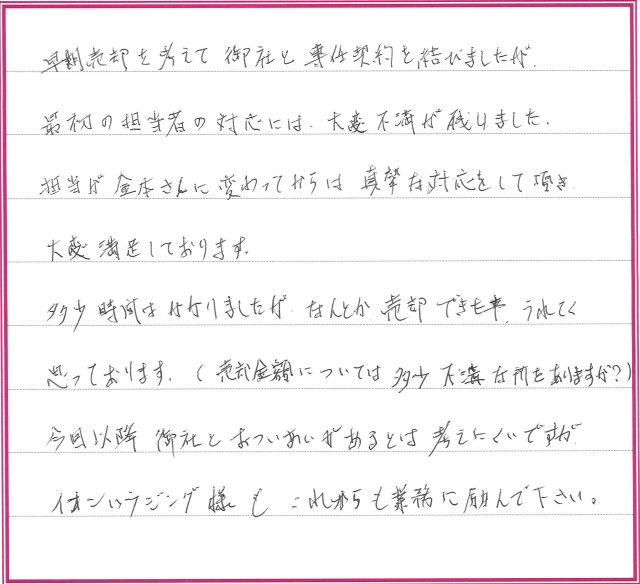 早期売却を考えて御社と専任契約を結びましたが、
最初の担当者の対応には、大変不満が残りました。
担当が金本さんに変わってからは真摯な対応をして頂き
大変満足しております。
多少時間はかかりましたが、なんとか売却できた事、うれしく
思っております。(売却金額については多少不満な所もありますが?)
今回以降御社とおつきあいがあるとは考えにくいですが
イオンハウジング様もこれからも業務に励んで下さい。